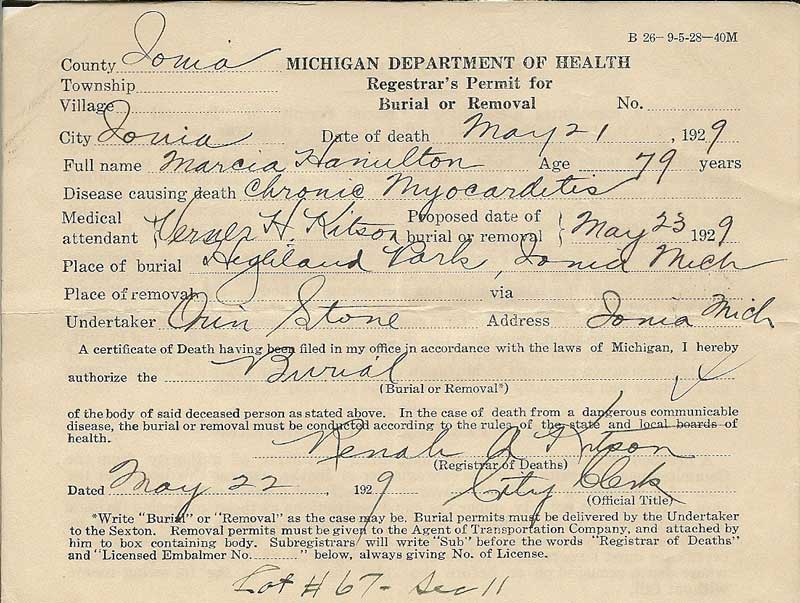 B 26—9-5-28—40M
County Ionia MICHIGAN DEPARTMENT OF HEALTH
Township Regestrar's Permit for
Village Burial or Removal No.
City Ionia Date of death May 21, 1929
Full name Marcia Hamilton Age 79 years
Disease causing death Chronic Myocarditis
Medical attendant Verner H. Kitson Proposed date of burial or removal May 23 1929
Place of burial Highland Park, Ionia Mich
Place of removal via
Undertaker Orin Stone Address Ionia Mich
A certificate of Death having been filed in my office in accordance with the laws of Michigan, I hereby
authorize the Burial
(Burial or Removal*)
of the body of said deceased person as stated above. In the case of death from a dangerous communicable
disease, the burial or removal must be conducted according to the rules of the state and local boards of
health.
Renah A Kitson
(Registrar of Deaths)
Dated May 22, 1929 City Clerk
(Official Title)
*Write "Burial" or "Removal" as the case may be. Burial permits must be delivered by the Undertaker
to the Sexton. Removal permits must be given to the Agent of Transportation Company, and attached by
him to box containing body. Subregistrars will write "Sub" before the words "Registrar of Deaths"
and "Licensed Embalmer No. " below, always giving No. of License.
Lot #67- Sec 11